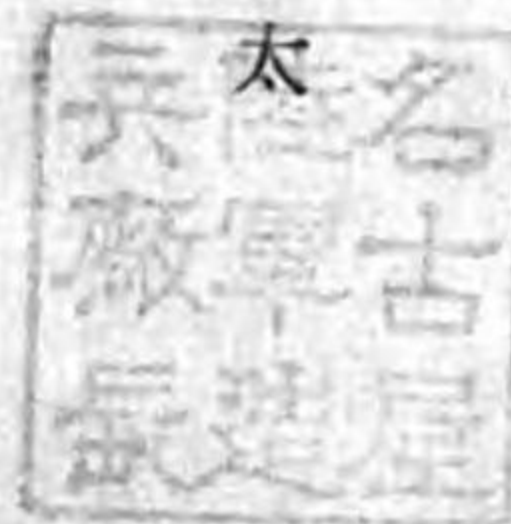 名古屋
陸軍造
兵廠長
太